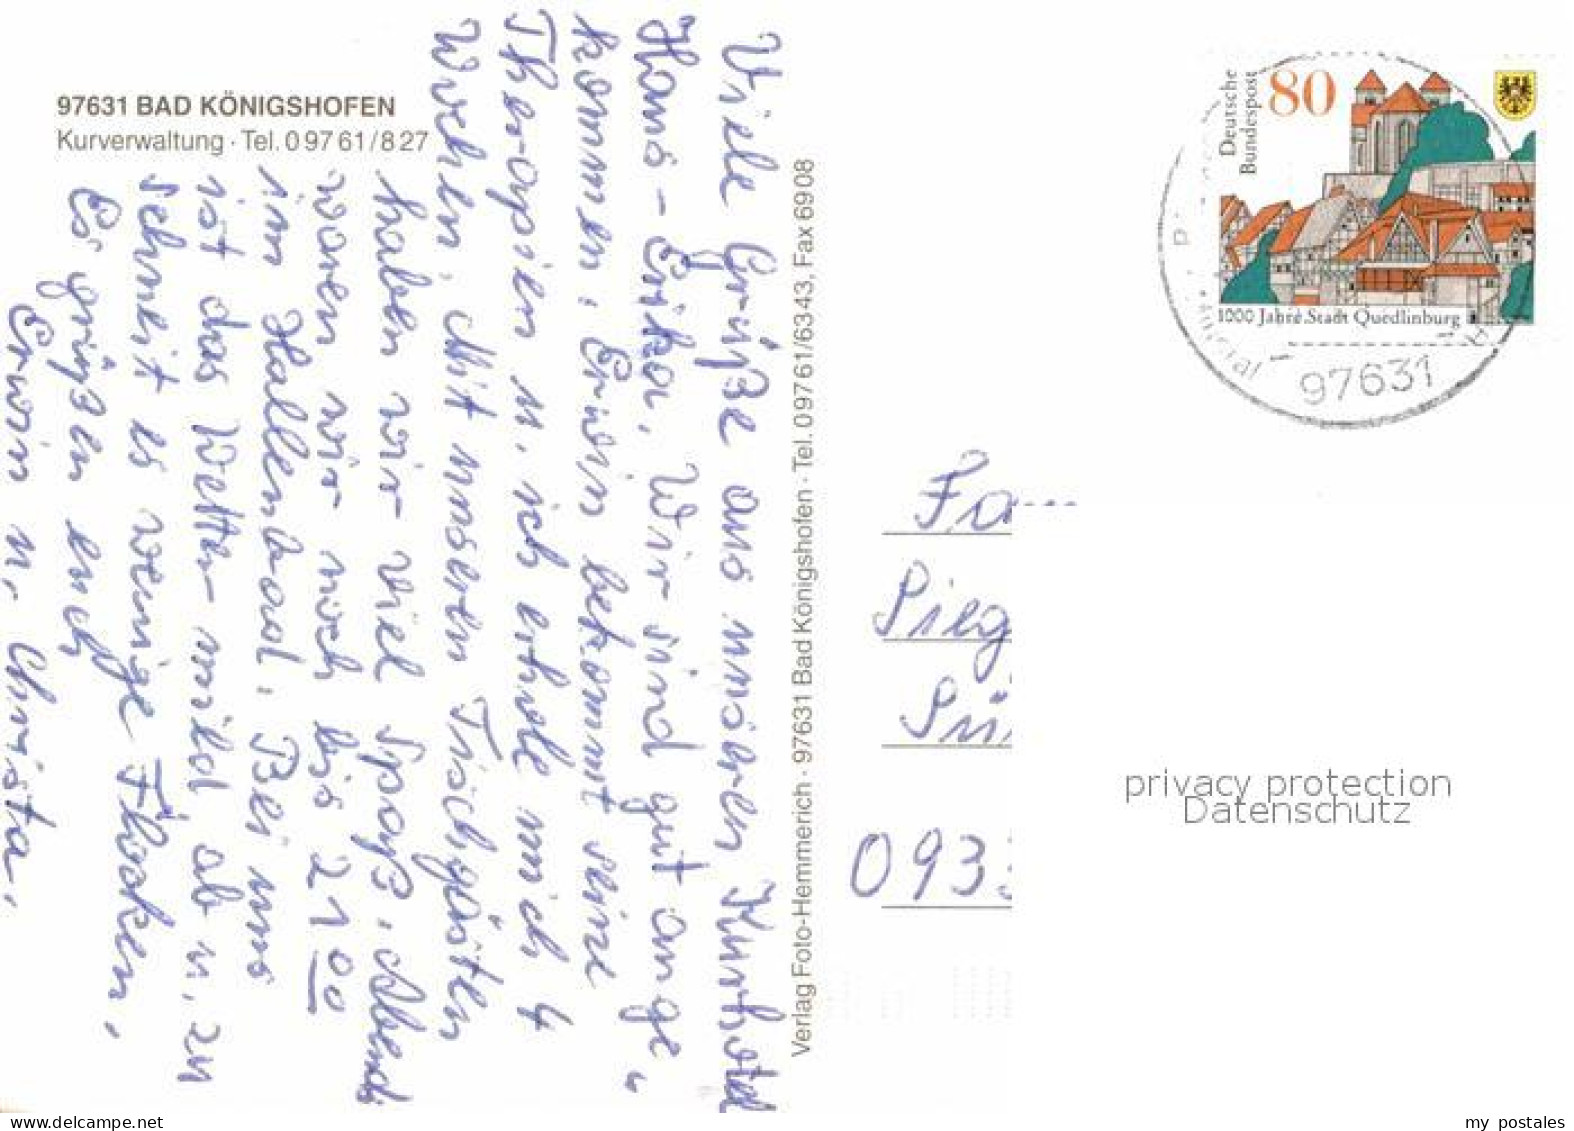 97631 BAD KÖNIGSHOFEN
Kurverwaltung · Tel. 0 97 61/8 27
Viele Grüße aus unseren Kurhotel
Hans-Erika, Wir sind gut ange"
kommen, Erwin bekommt seine
Therapien u. ich erhole mich 4
Wochen, Mit unseren Tischgästen
haben wir viel Spaß, Abends
waren wir noch bis 21 00
im Hallenbad, Bei uns
ist das Wetter mild, ab u. zu
schneit es wenige Flocken,
Es grüßen euch
Erwin u. Christa,
Verlag Foto-Hemmerich · 97631 Bad Königshofen · Tel. 0 97 61/63 43, Fax 69 08
Deutsche
Bundespost
80
1000 Jahre Stadt Quedlinburg
97631
Fa
Sieg
093
privacy protection
Datenschutz
my postales